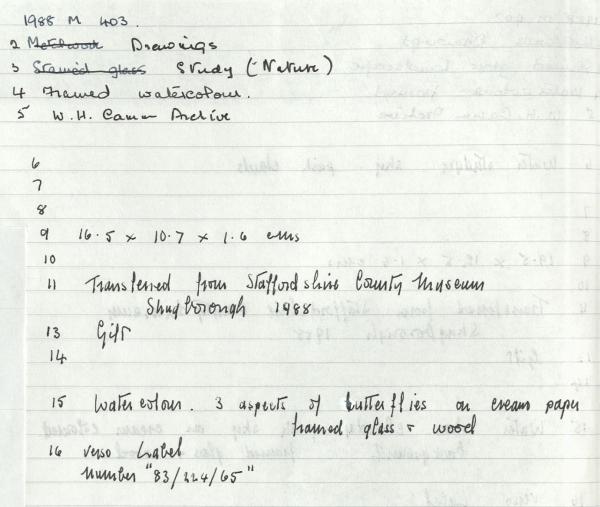 1988 M 403.
2 Metalwork Drawings
3 Stained glass Study (-Nature)
4 Framed watercolour.
5 W.H. Camm Archive
6
7
8
9 16.5 x 10.7 x 1.6 cms
10
11 Transferred from Staffordshire County Museum
Shugborough 1988
13 Gift
14
15 Watercolour. 3 aspects of butterflies on cream paper
framed glass & wood
16 verso Label
number "83/224/65"